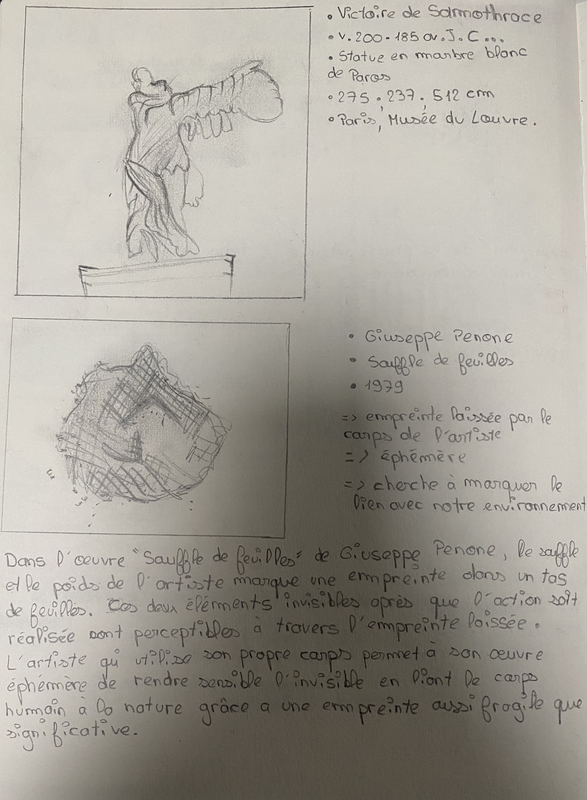 • Victoire de Samothrace
• v. 200 - 185 av. J. C...
• Statue en marbre blanc
de Paros
• 275 . 237 . 512 cm
• Paris, Musée du Louvre.
• Giuseppe Penone
• Souffle de feuilles
• 1979
=> empreinte laissée par le
corps de l'artiste
=> éphémère
=> cherche à marquer le
lien avec notre environnement
Dans l'œuvre "Souffle de feuilles" de Giuseppe Penone, le souffle
et le poids de l'artiste marque une empreinte dans un tas
de feuilles. Ces deux éléments invisibles après que l'action soit
réalisée sont perceptibles à travers l'empreinte laissée.
L'artiste qui utilise son propre corps permet à son œuvre
éphémère de rendre sensible l'invisible en liant le corps
humain à la nature grâce a une empreinte aussi fragile que
significative.